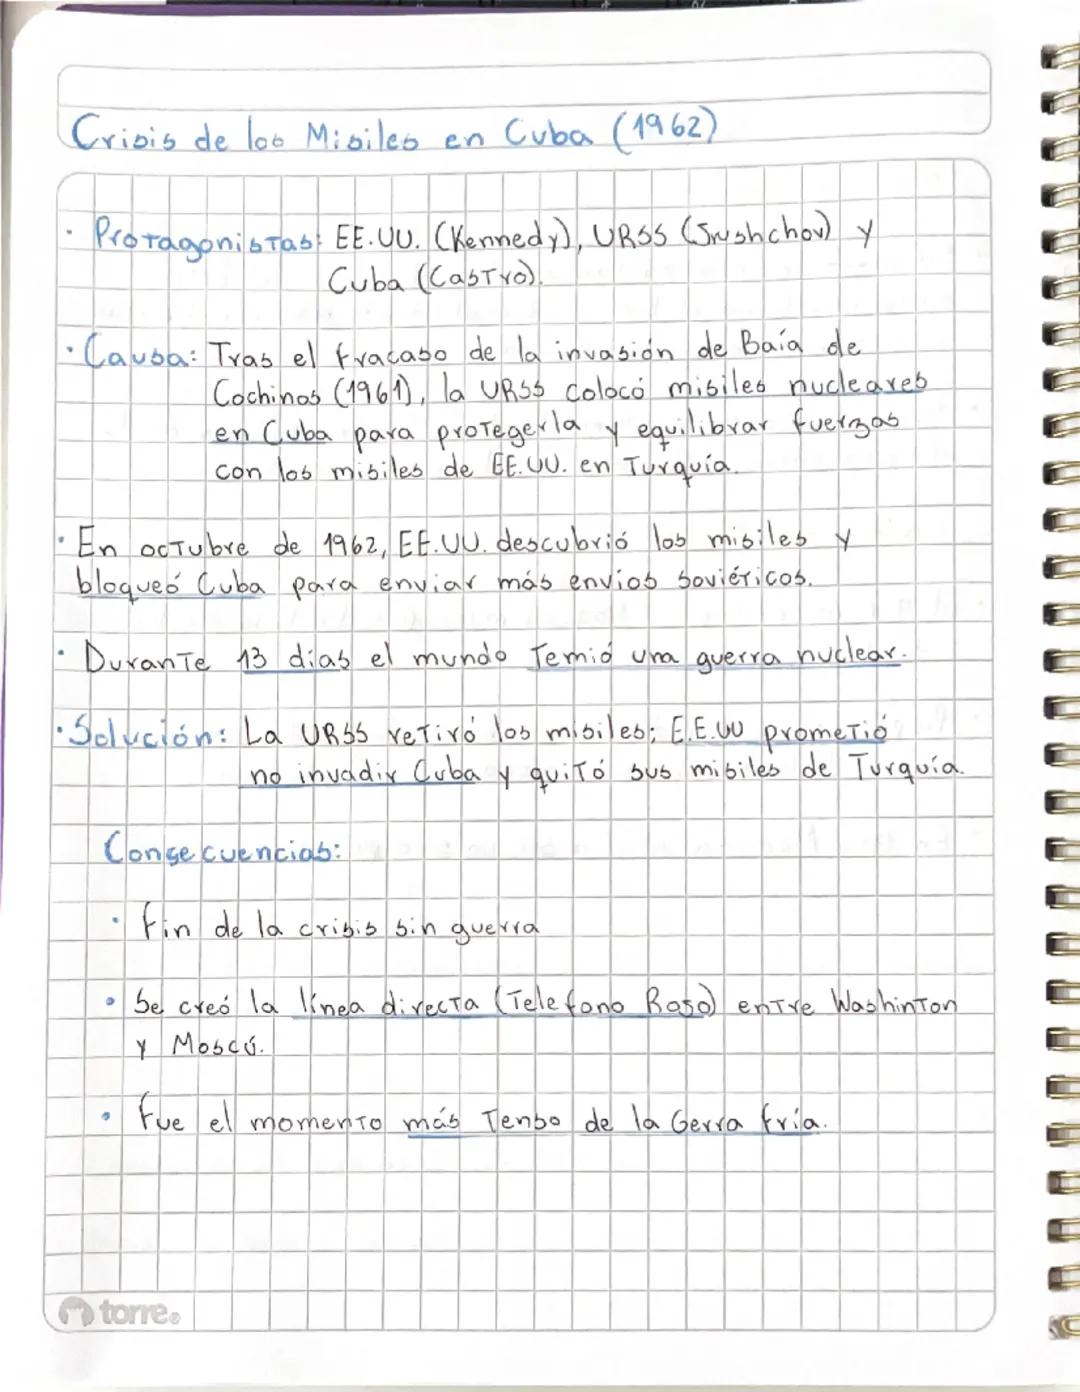 Crisis de los Misiles en Cuba (1962)
· Protagonistas: EE.UU. (Kennedy), URSS (Jrushchov) y
Cuba (Castro).
· Causa: Tras el fracaso de la invasión de Baía de
Cochinos (1961), la URSS colocó misiles nucleares
en Cuba para protegerla y equilibrar fuerzas
con los misiles de EE.UU. en Turquía.
· En octubre de 1962, EE.UU. descubrió los misiles y
bloqueó Cuba para enviar más envíos soviéticos.
· Durante 13 días el mundo temió una guerra nuclear.
· Solución: La URSS retiró los misiles; E.E.UU prometió
no invadir Cuba y quitó sus misiles de Turquía.
Consecuencias:
· Fin de la crisis sin guerra
· Se creó la línea directa (Telefono Roso) entre Washinton
y Moscú.
· Fue el momento más tenso de la Gerra fría.
torre®